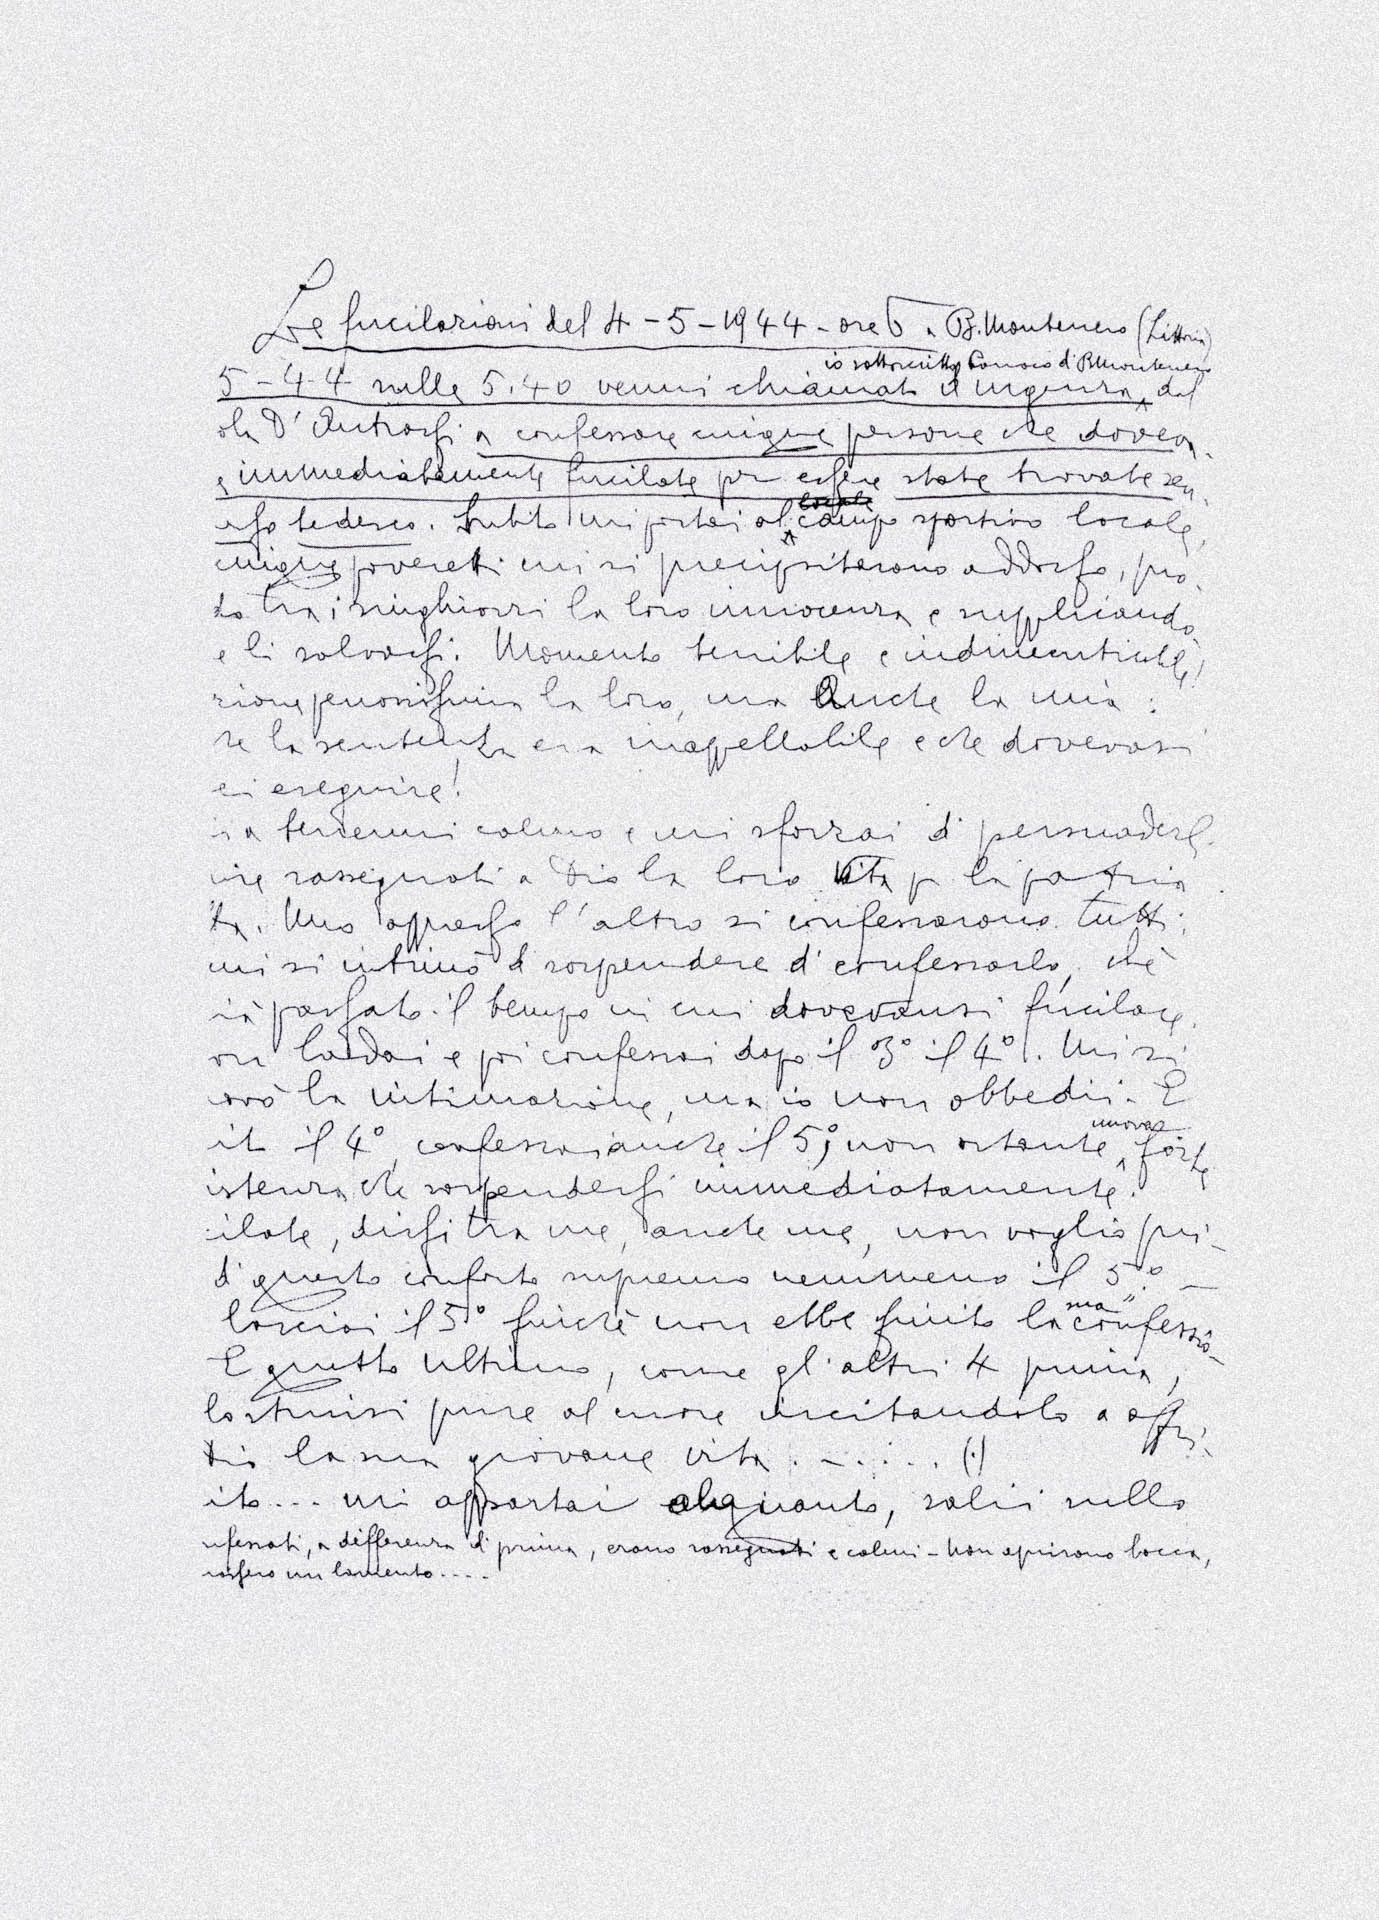 Le fucilazioni del 4-5-1944 - ore 6 a B. Montenero (Littoria)
io sottoscritto Parroco di B. Montenero
5-44 sulle 5.40 venni chiamato d'urgenza dal
a confessare cinque persone che dovevan-
immediatamente fucilate per essere state trovate sen-
tedesco. Subito mi portai al campo sportivo locale,
cinque poveretti mi si precipitarono addosso, pro-
tra i singhiozzi la loro innocenza e supplicando
e li salvassi. Momento terribile e indimenticabile!
zione penosissima la loro, ma anche la mia:
la sentenza era inappellabile e che dovevasi
eseguire!
tenermi calmo e mi sforzai di persuaderli
rassegnati a Dio la loro vita p la patria
Uno appresso l'altro si confessarono tutti:
mi si intimò di sospendere di confessarlo, chè
passato il tempo in cui dovevansi fucilare.
on badai e poi confessai dopo il 3° il 4°. Mi si
ovò la intimazione, ma io non obbedii. E
ito il 4°, confessai anche il 5°, non ostante nuova forte
istenza che sospendessi immediatamente.
ilate, dissi tra me, anche me, non voglio pri-
di questo conforto supremo nemmeno il 5° -
lasciai il 5° finchè non ebbe finito la sua confessio-
E questo ultimo, come gl'altri 4 prima,
lo strinsi pure al cuore incitandolo a offri-
Dio la sua giovane vita . - . . . . (.)
ito... mi appartai alquanto, salii sullo
nfessati, a differenza di prima, erano rassegnati e calmi - Non aprirono bocca,
un lamento....